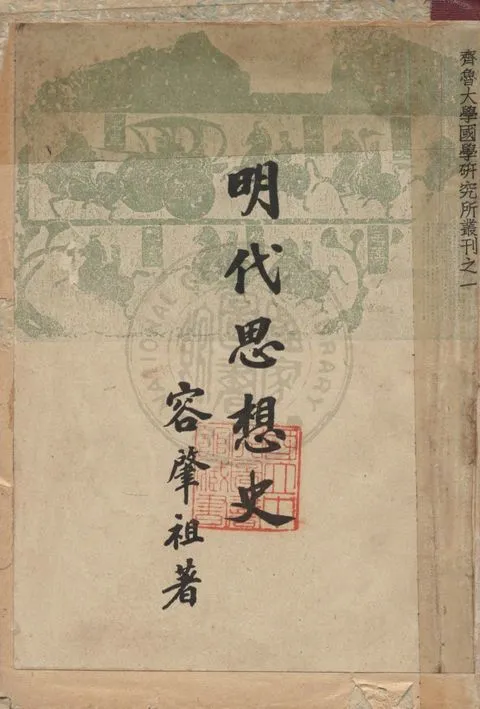 齊魯大學國學研究所叢刊之一
明代思想史
容肇祖著